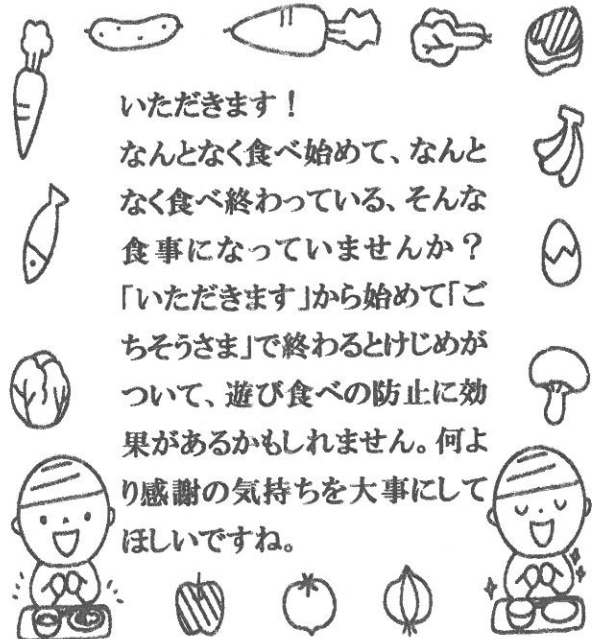 いただきます！
なんとなく食べ始めて、なんと
なく食べ終わっている、そんな
食事になっていませんか？
「いただきます」から始めて「ご
ちそうさま」で終わるとけじめが
ついて、遊び食べの防止に効
果があるかもしれません。何よ
り感謝の気持ちを大事にして
ほしいですね。